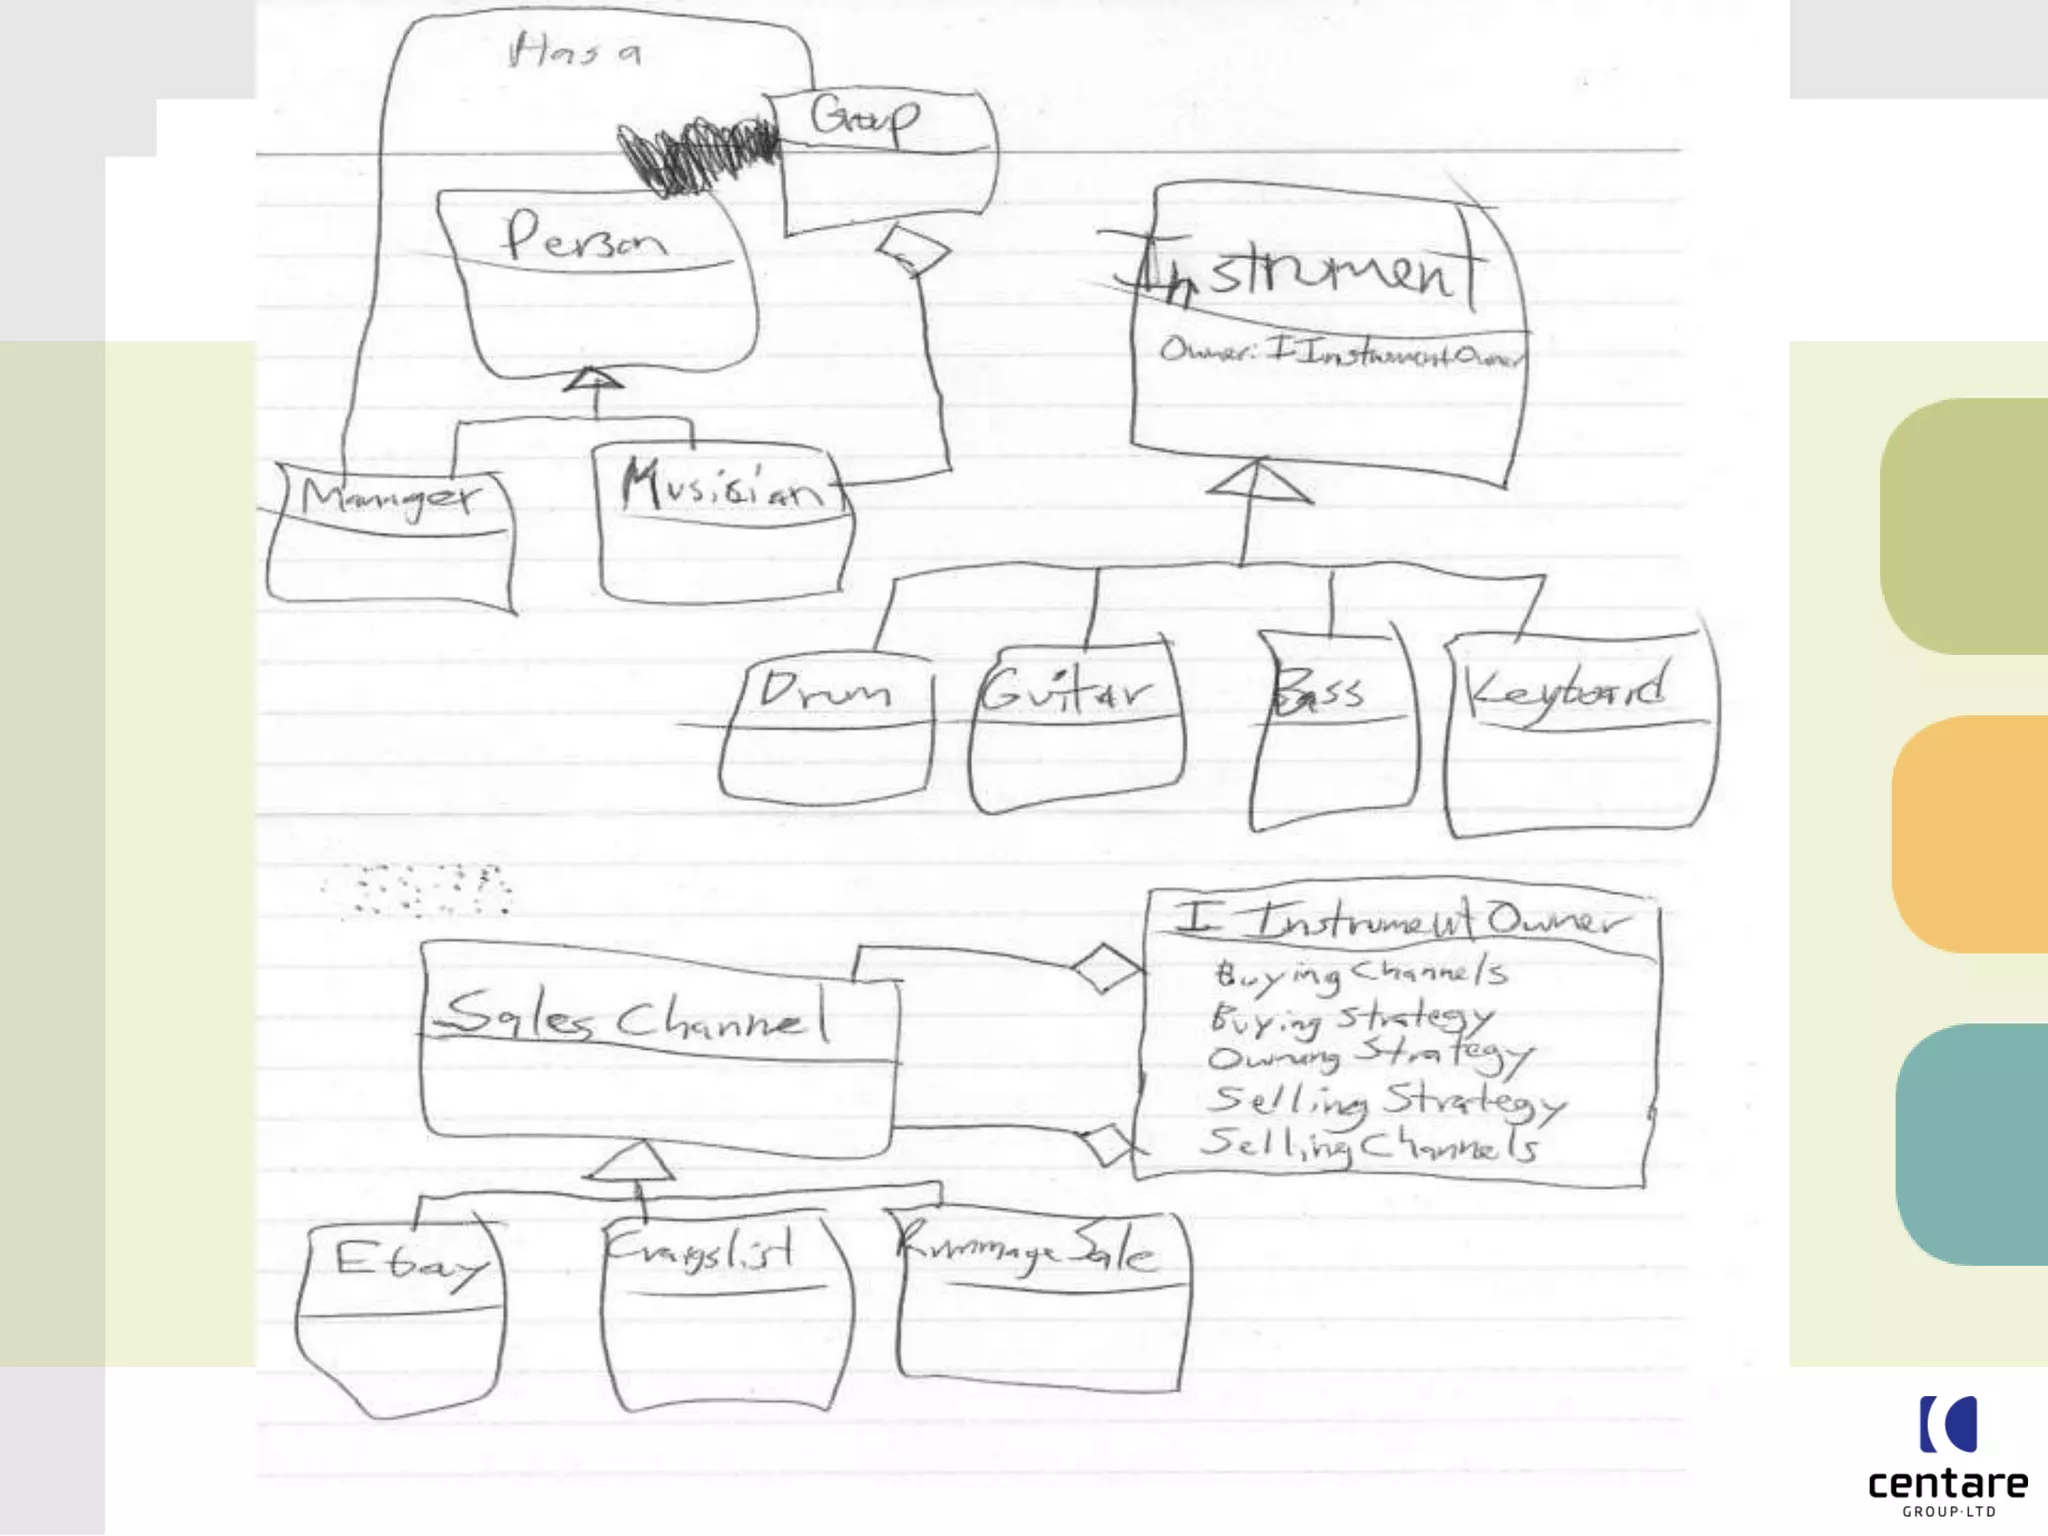 Has a
Group
Person
Instrument
Owner: IInstrumentOwner
Manager
Musician
Drum
Guitar
Bass
Keyboard
I InstrumentOwner
Buying Channels
Buying Strategy
Owning Strategy
Selling Strategy
Selling Channels
Sales Channel
Ebay
Craigslist
Rummage Sale
centare
GROUP·LTD